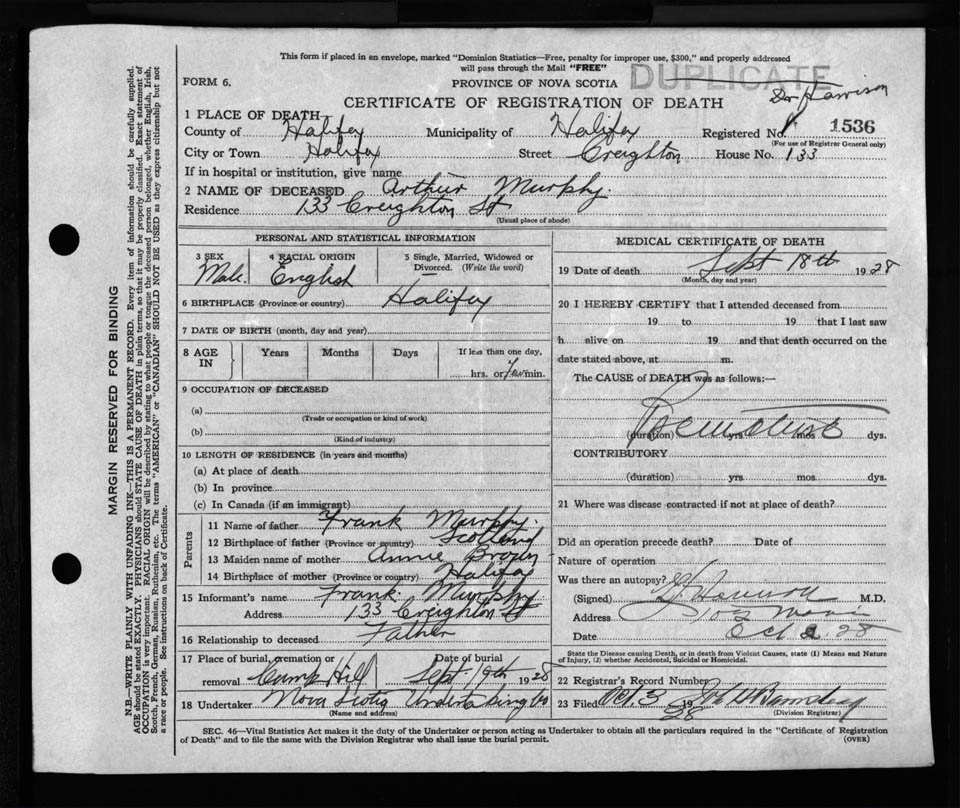 This form if placed in an envelope, marked "Dominion Statistics—Free, penalty for improper use, $300," and properly addressed
will pass through the Mail "FREE"
DUPLICATE
FORM 6.
PROVINCE OF NOVA SCOTIA
CERTIFICATE OF REGISTRATION OF DEATH
Dr Harrison
1 PLACE OF DEATH
County of Halifax Municipality of Halifax Registered No. 1536
(For use of Registrar General only)
City or Town Halifax Street Creighton House No. 133
If in hospital or institution, give name
2 NAME OF DECEASED Arthur Murphy.
Residence 133 Creighton St
(Usual place of abode)
PERSONAL AND STATISTICAL INFORMATION
3 SEX 4 RACIAL ORIGIN 5 Single, Married, Widowed or
Divorced. (Write the word)
Male. English
6 BIRTHPLACE (Province or country) Halifax
7 DATE OF BIRTH (month, day and year)
8 AGE IN Years Months Days If less than one day,
hrs. or min.
9 OCCUPATION OF DECEASED
(a)
(Trade or occupation or kind of work)
(b)
(Kind of industry)
10 LENGTH OF RESIDENCE (in years and months)
(a) At place of death
(b) In province
(c) In Canada (if an immigrant)
Parents
11 Name of father Frank Murphy.
12 Birthplace of father (Province or country) Scotland
13 Maiden name of mother Annie
14 Birthplace of mother (Province or country) Halifax
15 Informant's name Frank Murphy
Address 133 Creighton St
16 Relationship to deceased Father
17 Place of burial, cremation or removal Camp Hill Date of burial Sept. 19th 1928
18 Undertaker Nova Scotia Undertaking Co
(Name and address)
MEDICAL CERTIFICATE OF DEATH
19 Date of death Sept 18th 1928
(Month, day and year)
20 I HEREBY CERTIFY that I attended deceased from
19 to 19 that I last saw
h alive on 19 and that death occurred on the
date stated above, at m.
The CAUSE of DEATH was as follows:—
(duration) yrs mos dys.
CONTRIBUTORY
(duration) yrs mos dys.
21 Where was disease contracted if not at place of death?
Did an operation precede death? Date of
Nature of operation
Was there an autopsy?
(Signed) M.D.
Address
Date Oct 2. 28
State the Disease causing Death, or in death from Violent Causes, state (1) Means and Nature
of Injury, (2) whether Accidental, Suicidal or Homicidal.
22 Registrar's Record Number
23 Filed Oct. 3 19 28
(Division Registrar)
SEC. 46—Vital Statistics Act makes it the duty of the Undertaker or person acting as Undertaker to obtain all the particulars required in the "Certificate of Registration
of Death" and to file the same with the Division Registrar who shall issue the burial permit. (OVER)
MARGIN RESERVED FOR BINDING
N.B.—WRITE PLAINLY WITH UNFADING INK—THIS IS A PERMANENT RECORD. Every item of information should be carefully supplied.
AGE should be stated EXACTLY. PHYSICIANS should STATE CAUSE OF DEATH in plain terms, so that it may be properly classified. Exact statement of
OCCUPATION is very important. RACIAL ORIGIN will be described by stating to what people or tongue the deceased person belonged, whether English, Irish,
Scotch, French, German, Russian, Ruthenian, etc. The terms "AMERICAN" or "CANADIAN" SHOULD NOT BE USED as they express citizenship but not
a race or people. See instructions on back of Certificate.